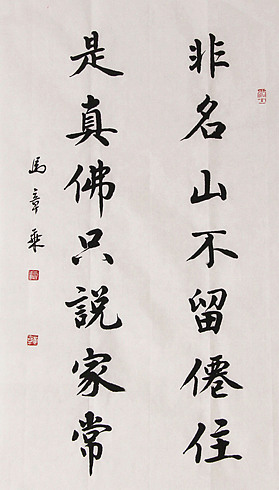 非名山不留僊住
是真佛只說家常
馬章乘